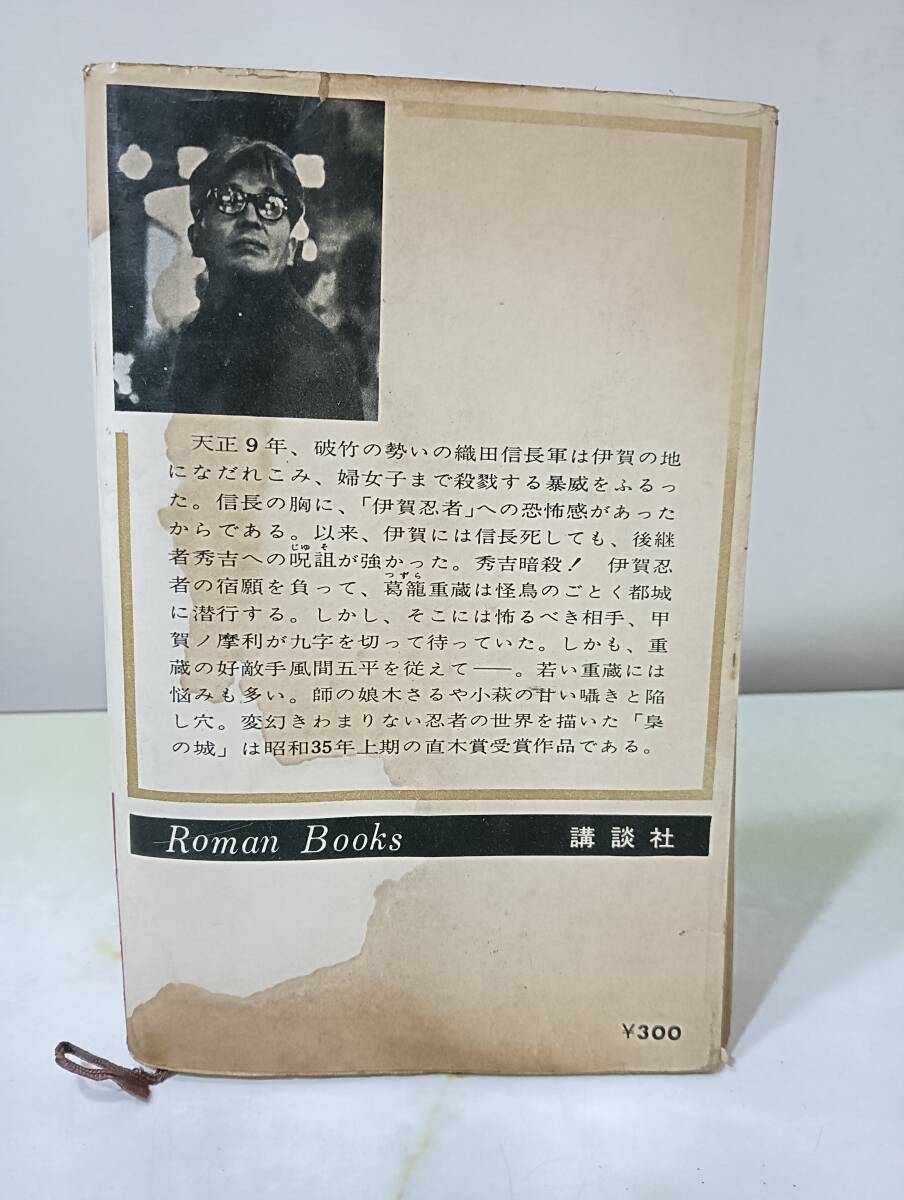 天正9年、破竹の勢いの織田信長軍は伊賀の地
になだれこみ、婦女子まで殺戮する暴威をふるっ
た。信長の胸に、「伊賀忍者」への恐怖感があった
からである。以来、伊賀には信長死しても、後継
じゅそ
者秀吉への呪詛が強かった。秀吉暗殺! 伊賀忍
つずら
者の宿願を負って、葛籠重蔵は怪鳥のごとく都城
に潜行する。しかし、そこには怖るべき相手、甲
賀ノ摩利が九字を切って待っていた。しかも、重
蔵の好敵手風間五平を従えて――。若い重蔵には
悩みも多い。師の娘木さるや小萩の甘い囁きと陥
し穴。変幻きわまりない忍者の世界を描いた「梟
の城」は昭和35年上期の直木賞受賞作品である。
Roman Books 講談社
¥300